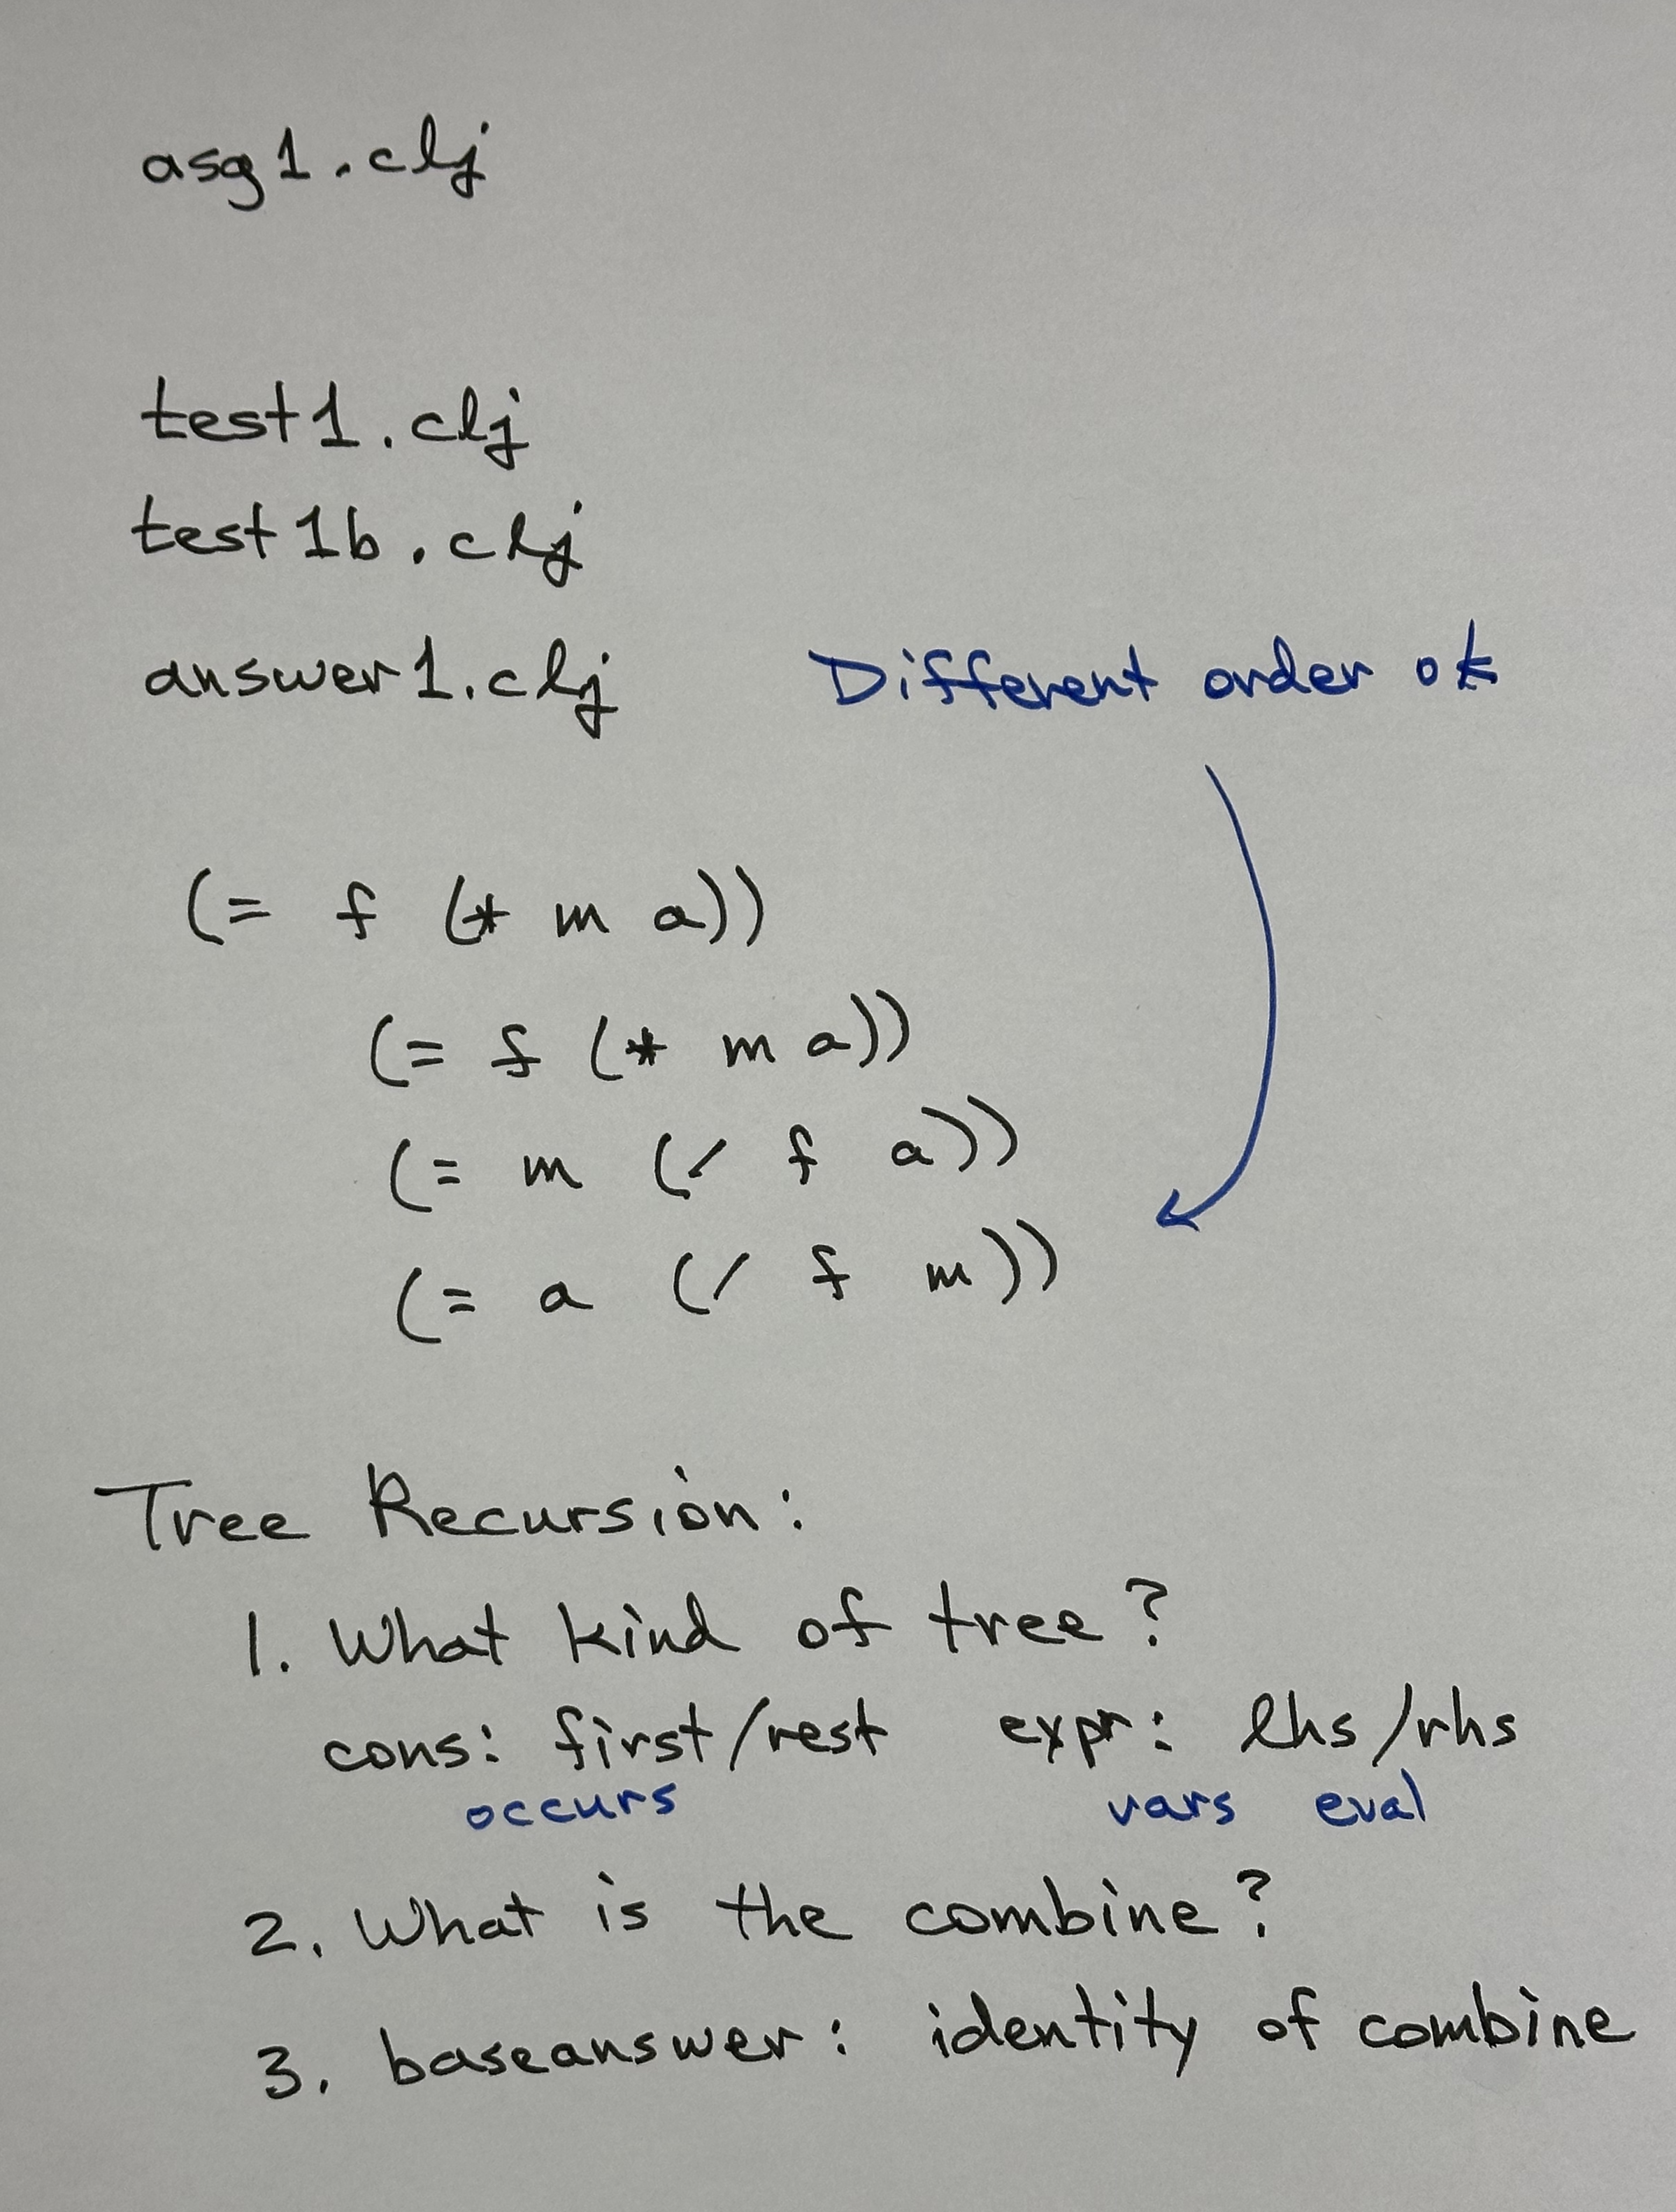 asg1.clj
test1.clj
test1b.clj
answer1.clj
Different order ok
(= f (* m a))
(= f (* m a))
(= m (/ f a))
(= a (/ f m))
Tree Recursion:
1. What kind of tree?
cons: first/rest expr: lhs/rhs
occurs vars eval
2. What is the combine?
3. baseanswer: identity of combine